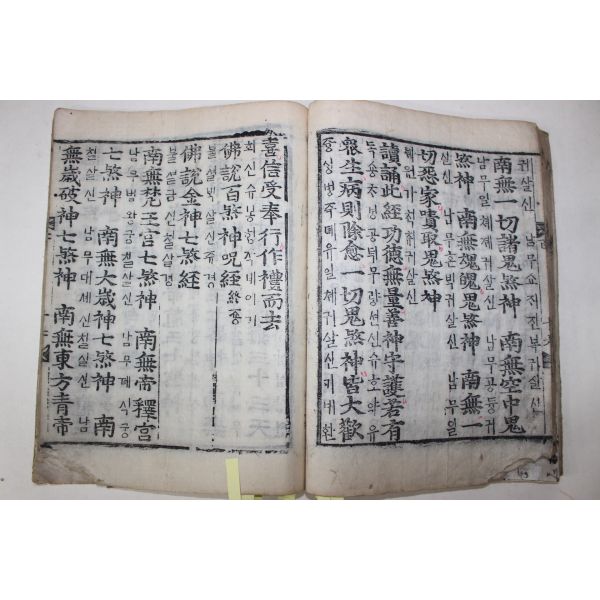 귀살신 남무쇼재전부귀살신
南無一切諸鬼煞神 南無空中鬼
남무일체제귀살신 남무공듕귀
煞神 南無魂魄鬼煞神 南無一
살신 남무혼빅귀살신 남무일
切悉家嘖取鬼煞神
讀誦此經功德無量善神守護若有
독숑ᄎᆞ경공덕무량션신슈호약유
衆生病則除愈一切鬼煞神皆大歡
즁ᄉᆡᆼ병즉뎨유일쳬귀살신ᄀᆡ대환
喜信受奉行作禮而去
희신슈봉ᄒᆡᆼ작녜이거
佛說百煞神呪經終
불셜ᄇᆡᆨ살신쥬경
佛說金神七煞經
불셜금신칠살경
南無梵王宮七煞神 南無帝釋宮
남무범왕궁칠살신 남무뎨셕궁
七煞神 南無大歲神七煞神 南
칠살신 남무대셰신칠살신 남
無歲破神七煞神 南無東方靑帝